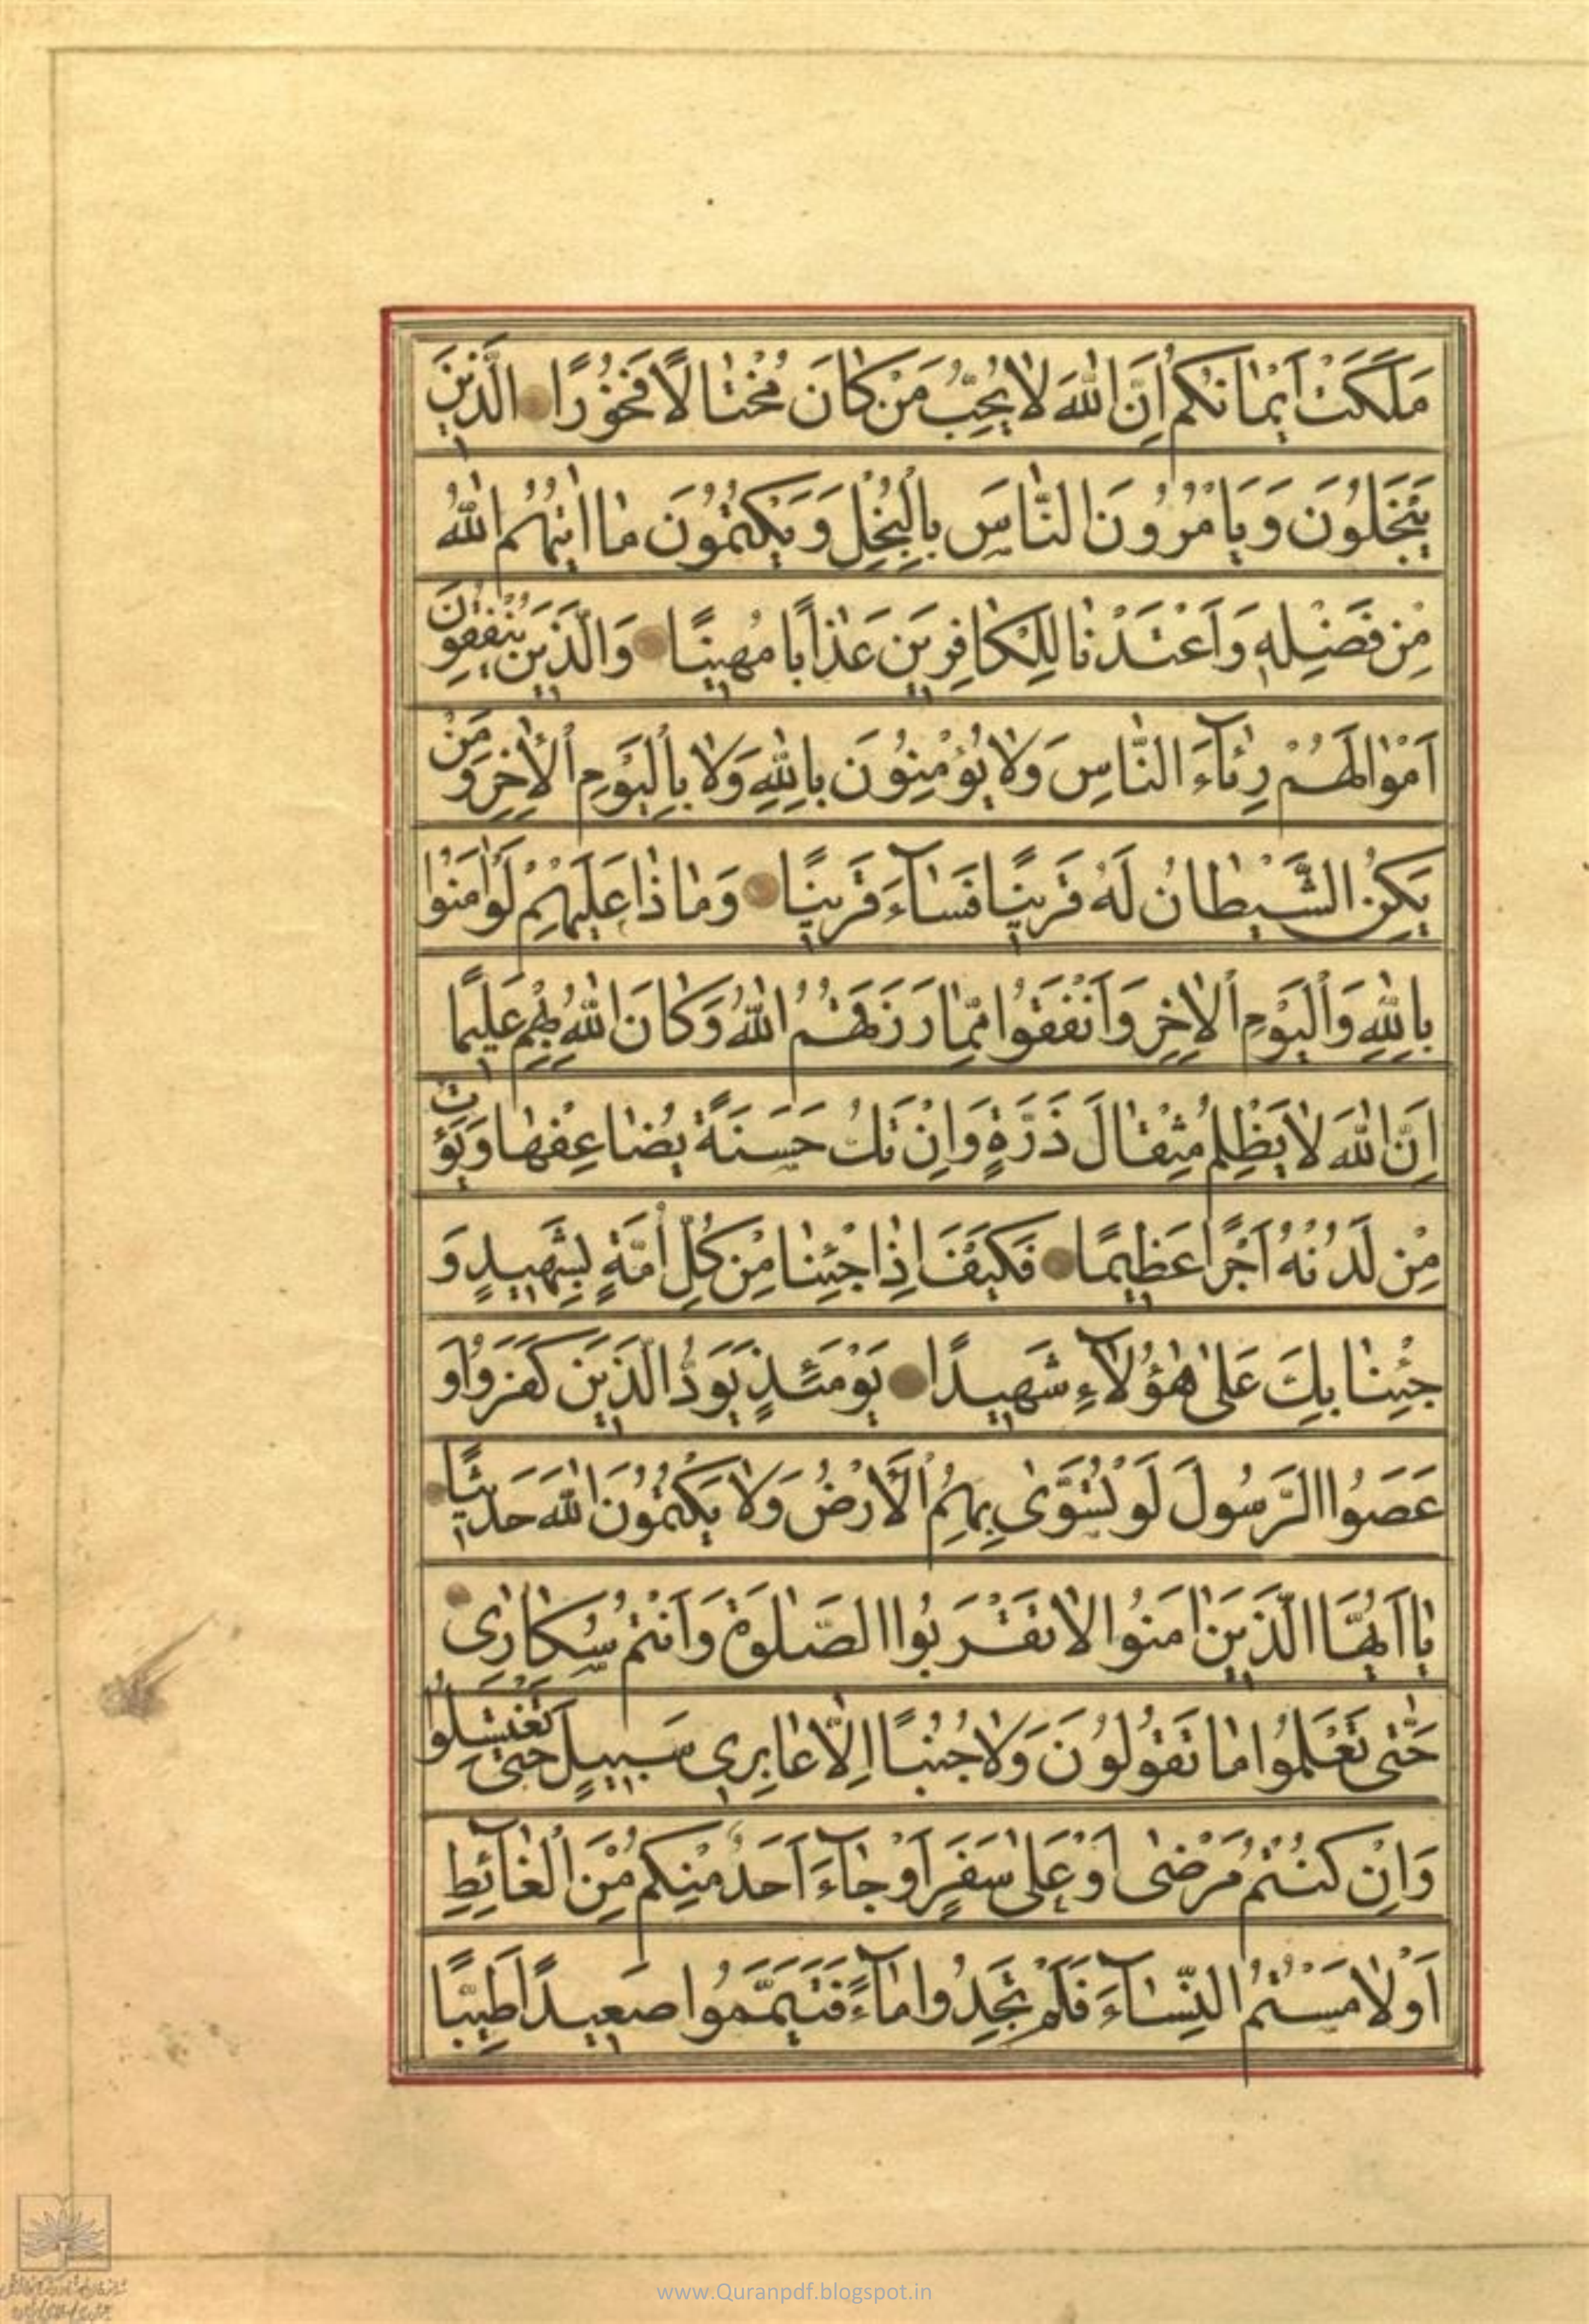 مَلَكَتْ اَيْمٰانُكُمْ اِنَّ اللّٰهَ لٰا يُحِبُّ مَنْ كٰانَ مُخْتٰالًا فَخُورًا الَّذٖينَ
يَبْخَلُونَ وَيَاْمُرُونَ النّٰاسَ بِالْبُخْلِ وَيَكْتُمُونَ مٰا اٰتٰيهُمُ اللّٰهُ
مِنْ فَضْلِهٖ وَاَعْتَدْنٰا لِلْكٰافِرٖينَ عَذٰابًا مُهٖينًا وَالَّذٖينَ يُنْفِقُونَ
اَمْوٰالَهُمْ رِئٰآءَ النّٰاسِ وَلٰا يُؤْمِنُونَ بِاللّٰهِ وَلٰا بِالْيَوْمِ الْاٰخِرِ وَمَنْ
يَكُنِ الشَّيْطٰانُ لَهُ قَرٖينًا فَسٰآءَ قَرٖينًا وَمٰا ذٰا عَلَيْهِمْ لَوْ اٰمَنُوا
بِاللّٰهِ وَالْيَوْمِ الْاٰخِرِ وَاَنْفَقُوا مِمّٰا رَزَقَهُمُ اللّٰهُ وَكٰانَ اللّٰهُ بِهِمْ عَلٖيمًا
اِنَّ اللّٰهَ لٰا يَظْلِمُ مِثْقٰالَ ذَرَّةٍ وَاِنْ تَكُ حَسَنَةً يُضٰاعِفْهٰا وَيُؤْتِ
مِنْ لَدُنْهُ اَجْرًا عَظٖيمًا فَكَيْفَ اِذٰا جِئْنٰا مِنْ كُلِّ اُمَّةٍ بِشَهٖيدٍ وَ
جِئْنٰا بِكَ عَلٰى هٰؤُلٰآءِ شَهٖيدًا يَوْمَئِذٍ يَوَدُّ الَّذٖينَ كَفَرُوا وَ
عَصَوُا الرَّسُولَ لَوْ تُسَوّٰى بِهِمُ الْاَرْضُ وَلٰا يَكْتُمُونَ اللّٰهَ حَدٖيثًا
يٰا اَيُّهَا الَّذٖينَ اٰمَنُوا لٰا تَقْرَبُوا الصَّلٰوةَ وَاَنْتُمْ سُكٰارٰى
حَتّٰى تَعْلَمُوا مٰا تَقُولُونَ وَلٰا جُنُبًا اِلّٰا عٰابِرٖى سَبٖيلٍ حَتّٰى تَغْتَسِلُوا
وَاِنْ كُنْتُمْ مَرْضٰى اَوْ عَلٰى سَفَرٍ اَوْ جٰآءَ اَحَدٌ مِنْكُمْ مِنَ الْغٰآئِطِ
اَوْ لٰامَسْتُمُ النِّسٰآءَ فَلَمْ تَجِدُوا مٰآءً فَتَيَمَّمُوا صَعٖيدًا طَيِّبًا
www.Quranpdf.blogspot.in